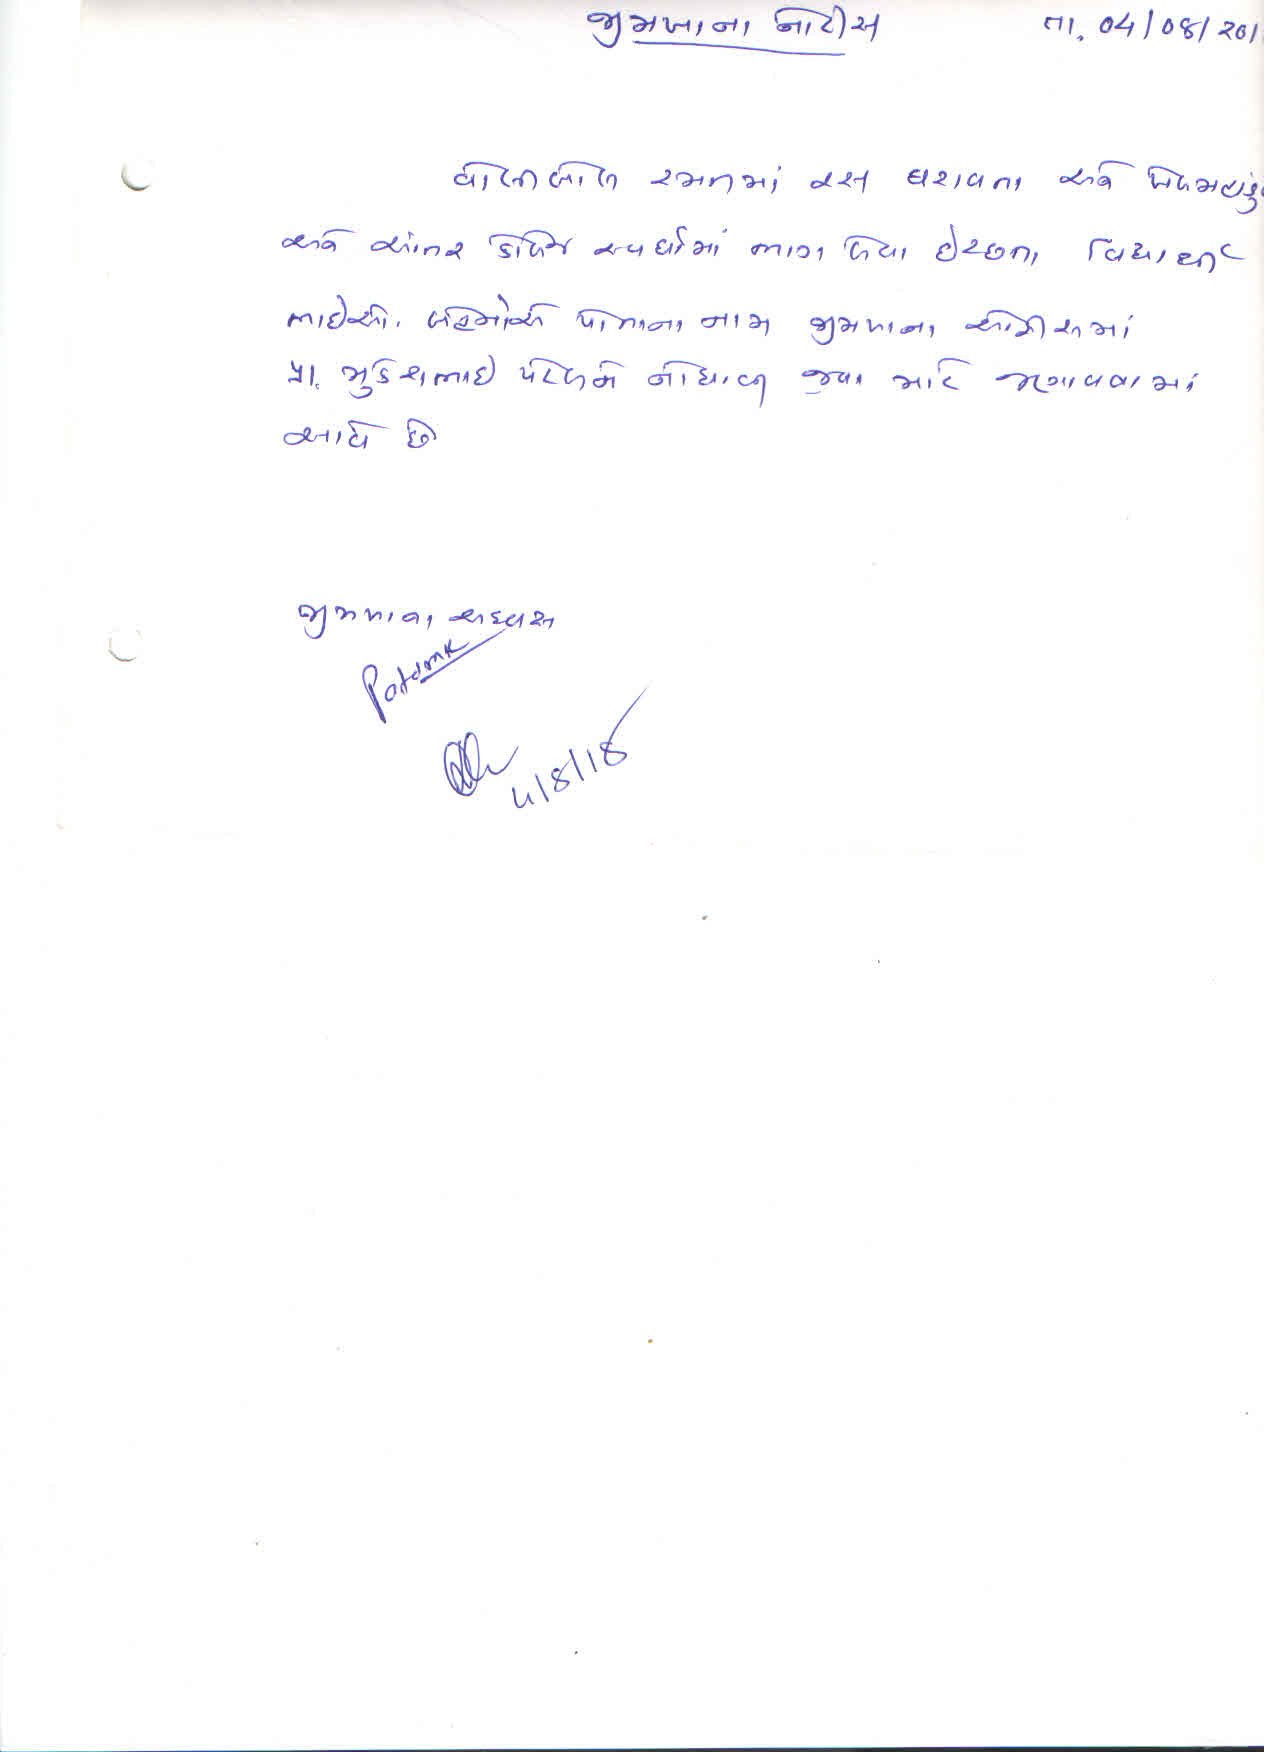 જીમખાના નોટીસ તા. 04/08/201
વોલીબોલ રમતમાં રસ ધરાવતા અને
અને આંતર કોલેજ સ્પર્ધામાં ભાગ લેવા ઈચ્છતા વિદ્યાર્થી
ભાઈઓ. બહેનોએ પોતાના નામ જીમખાના ઓફીસમાં
પ્રા. મુકેશભાઈ પટેલને નોંધાવી જવા માટે જણાવવામાં
આવે છે
જીમખાના અધ્યક્ષ
Patelmk
4/8/18